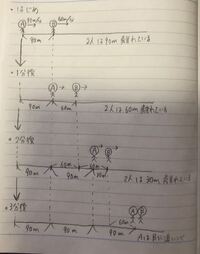 ・はじめ
A 90m/分 B 60m/分
90m 2人は90m離れている
・1分後
A B
90m 60m 2人は60m離れている
・2分後
A B
60m 60m
90m 90m 30m 2人は30m離れている
・3分後
A B
60m
90m 90m 90m AはBに追いついた